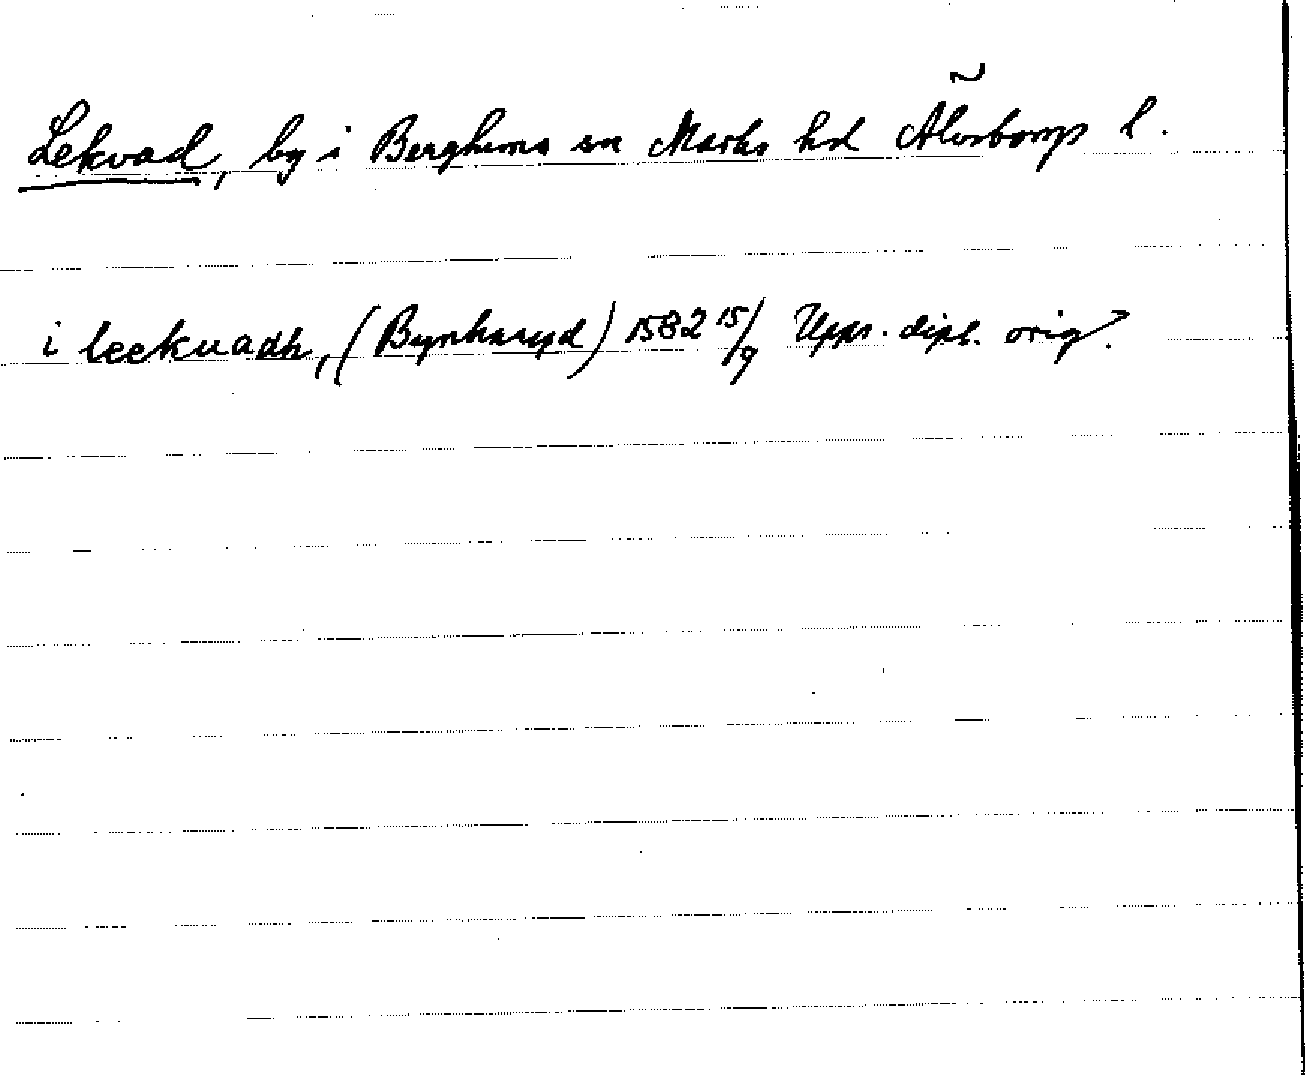 Lekvad, by i Berghems sn Marks hd Älvsborgs l.
i leekuadh, (Bynkaryd) 1582 15/9 Upps. dipl. orig.